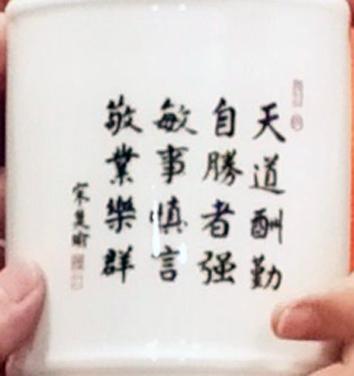 天道酬勤
自勝者强
敏事慎言
敬業樂群